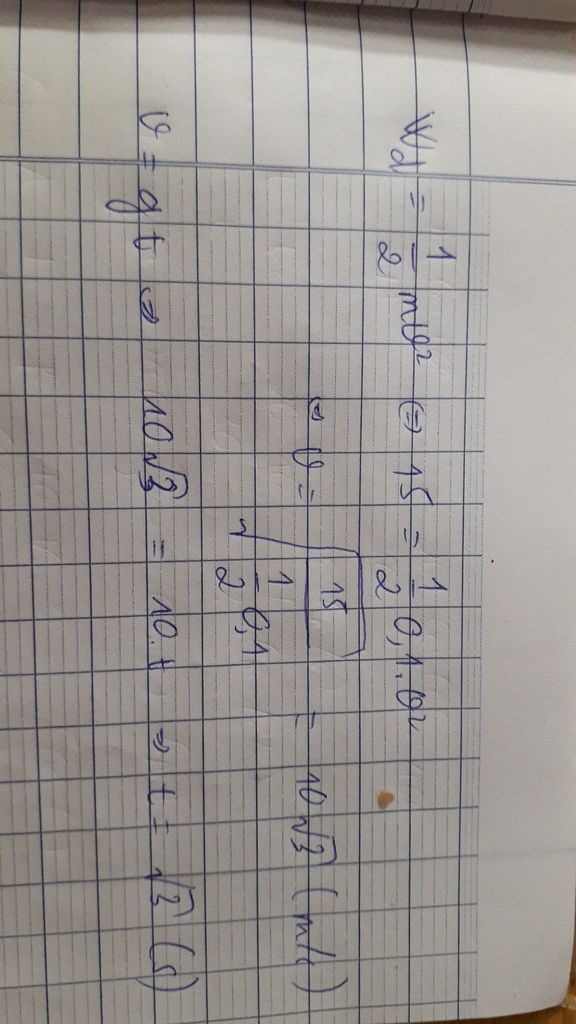 Wđ = 1/2 mv² ⇔ 15 = 1/2 0,1.v²
⇒ v = √(15 / (1/2 0,1)) = 10√3 (m/s)
v = gt ⇒ 10√3 = 10.t ⇒ t = √3 (s)